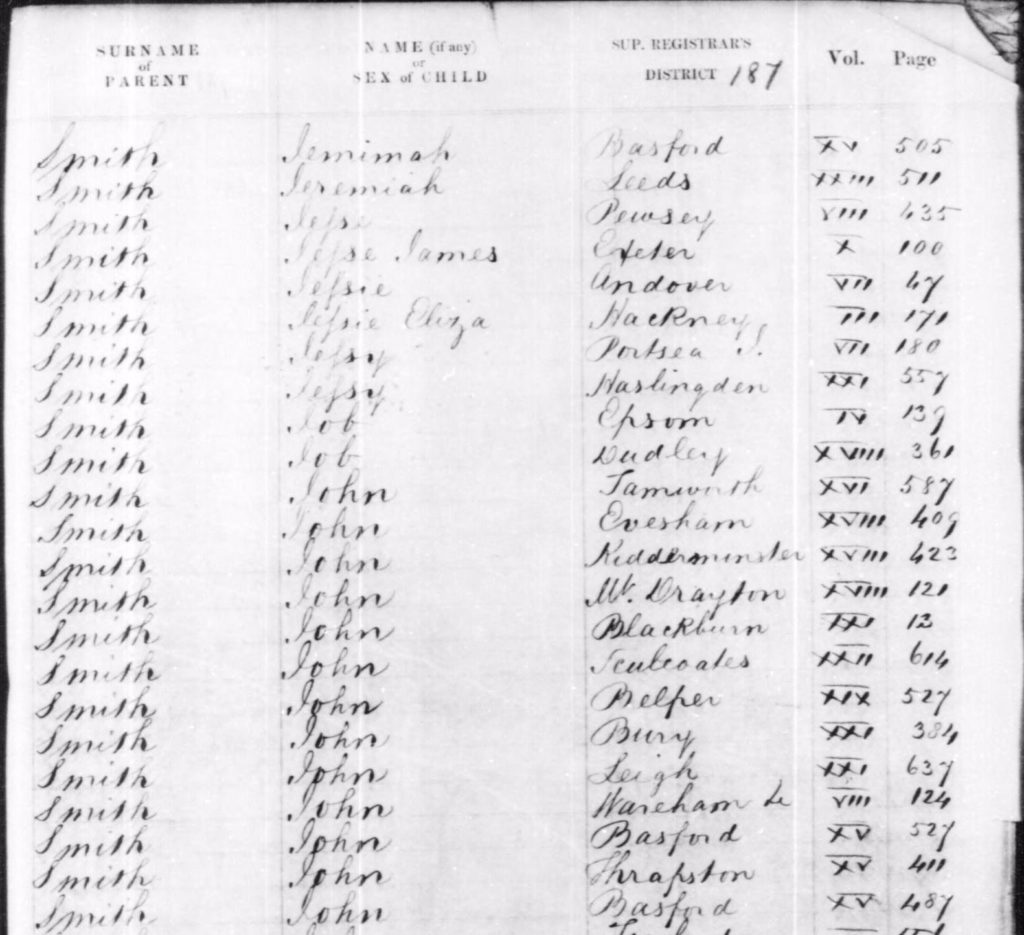 SURNAME of PARENT NAME (if any) or SEX of CHILD SUP. REGISTRAR'S DISTRICT 187 Vol. Page
Smith Jemimah Basford XV 505
Smith Jeremiah Leeds XXIII 511
Smith Jesse Pewsey VIII 435
Smith Jesse James Exeter X 100
Smith Jessie Andover VII 47
Smith Jessie Eliza Hackney III 171
Smith Jessy Portsea I. VII 180
Smith Jessy Haslingden XXI 557
Smith Job Epsom IV 139
Smith Job Dudley XVIII 361
Smith John Tamworth XVI 587
Smith John Evesham XVIII 409
Smith John Kidderminster XVIII 423
Smith John Mt. Drayton XVIII 121
Smith John Blackburn XXI 12
Smith John Sculcoates XXII 614
Smith John Belper XIX 527
Smith John Bury XXI 384
Smith John Leigh XXI 637
Smith John Wareham &c VIII 124
Smith John Basford XV 527
Smith John Thrapston XV 411
Smith John Basford XV 487